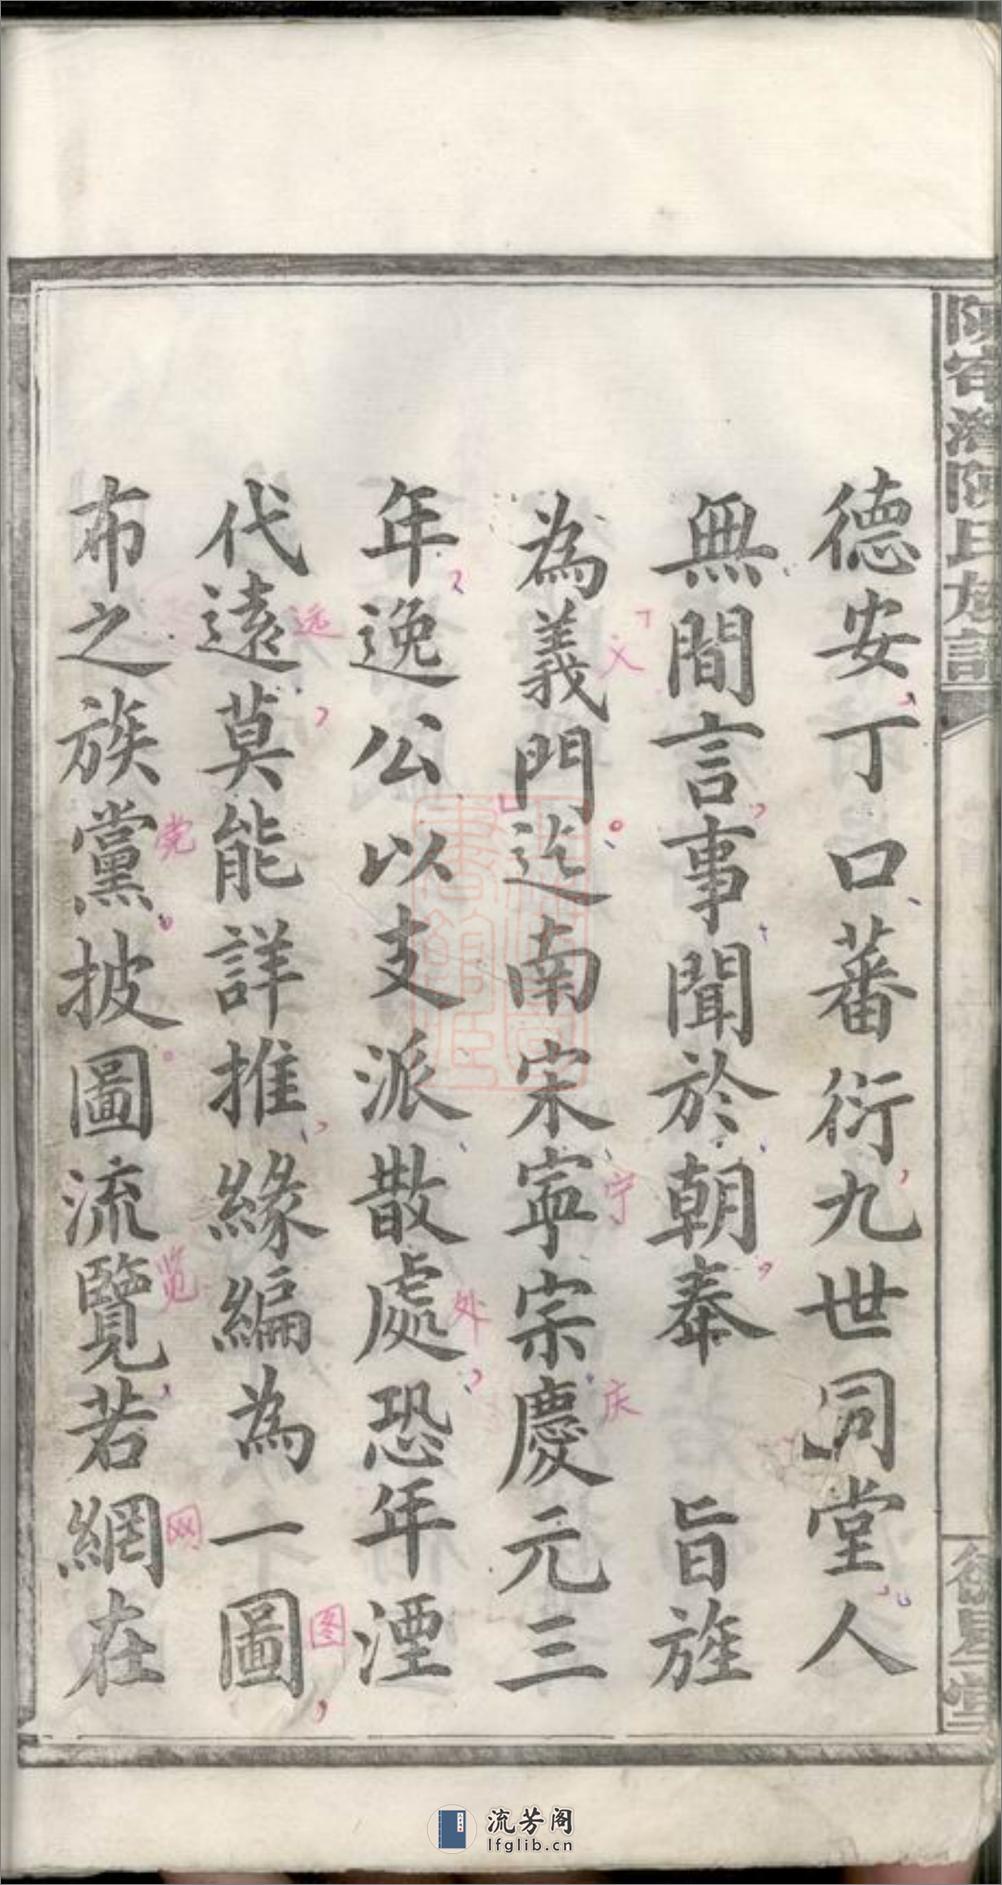 德安丁口蕃衍九世同堂人
無間言事聞於朝奉 旨旌
為義門迄南宋寧宗慶元三
年逸公以支派散處恐年湮
代遠莫能詳推緣編為一圖
布之族黨披圖流覽若網在
义
宁
庆
外
远
图
党
览
网
流芳阁
lfglib.cn